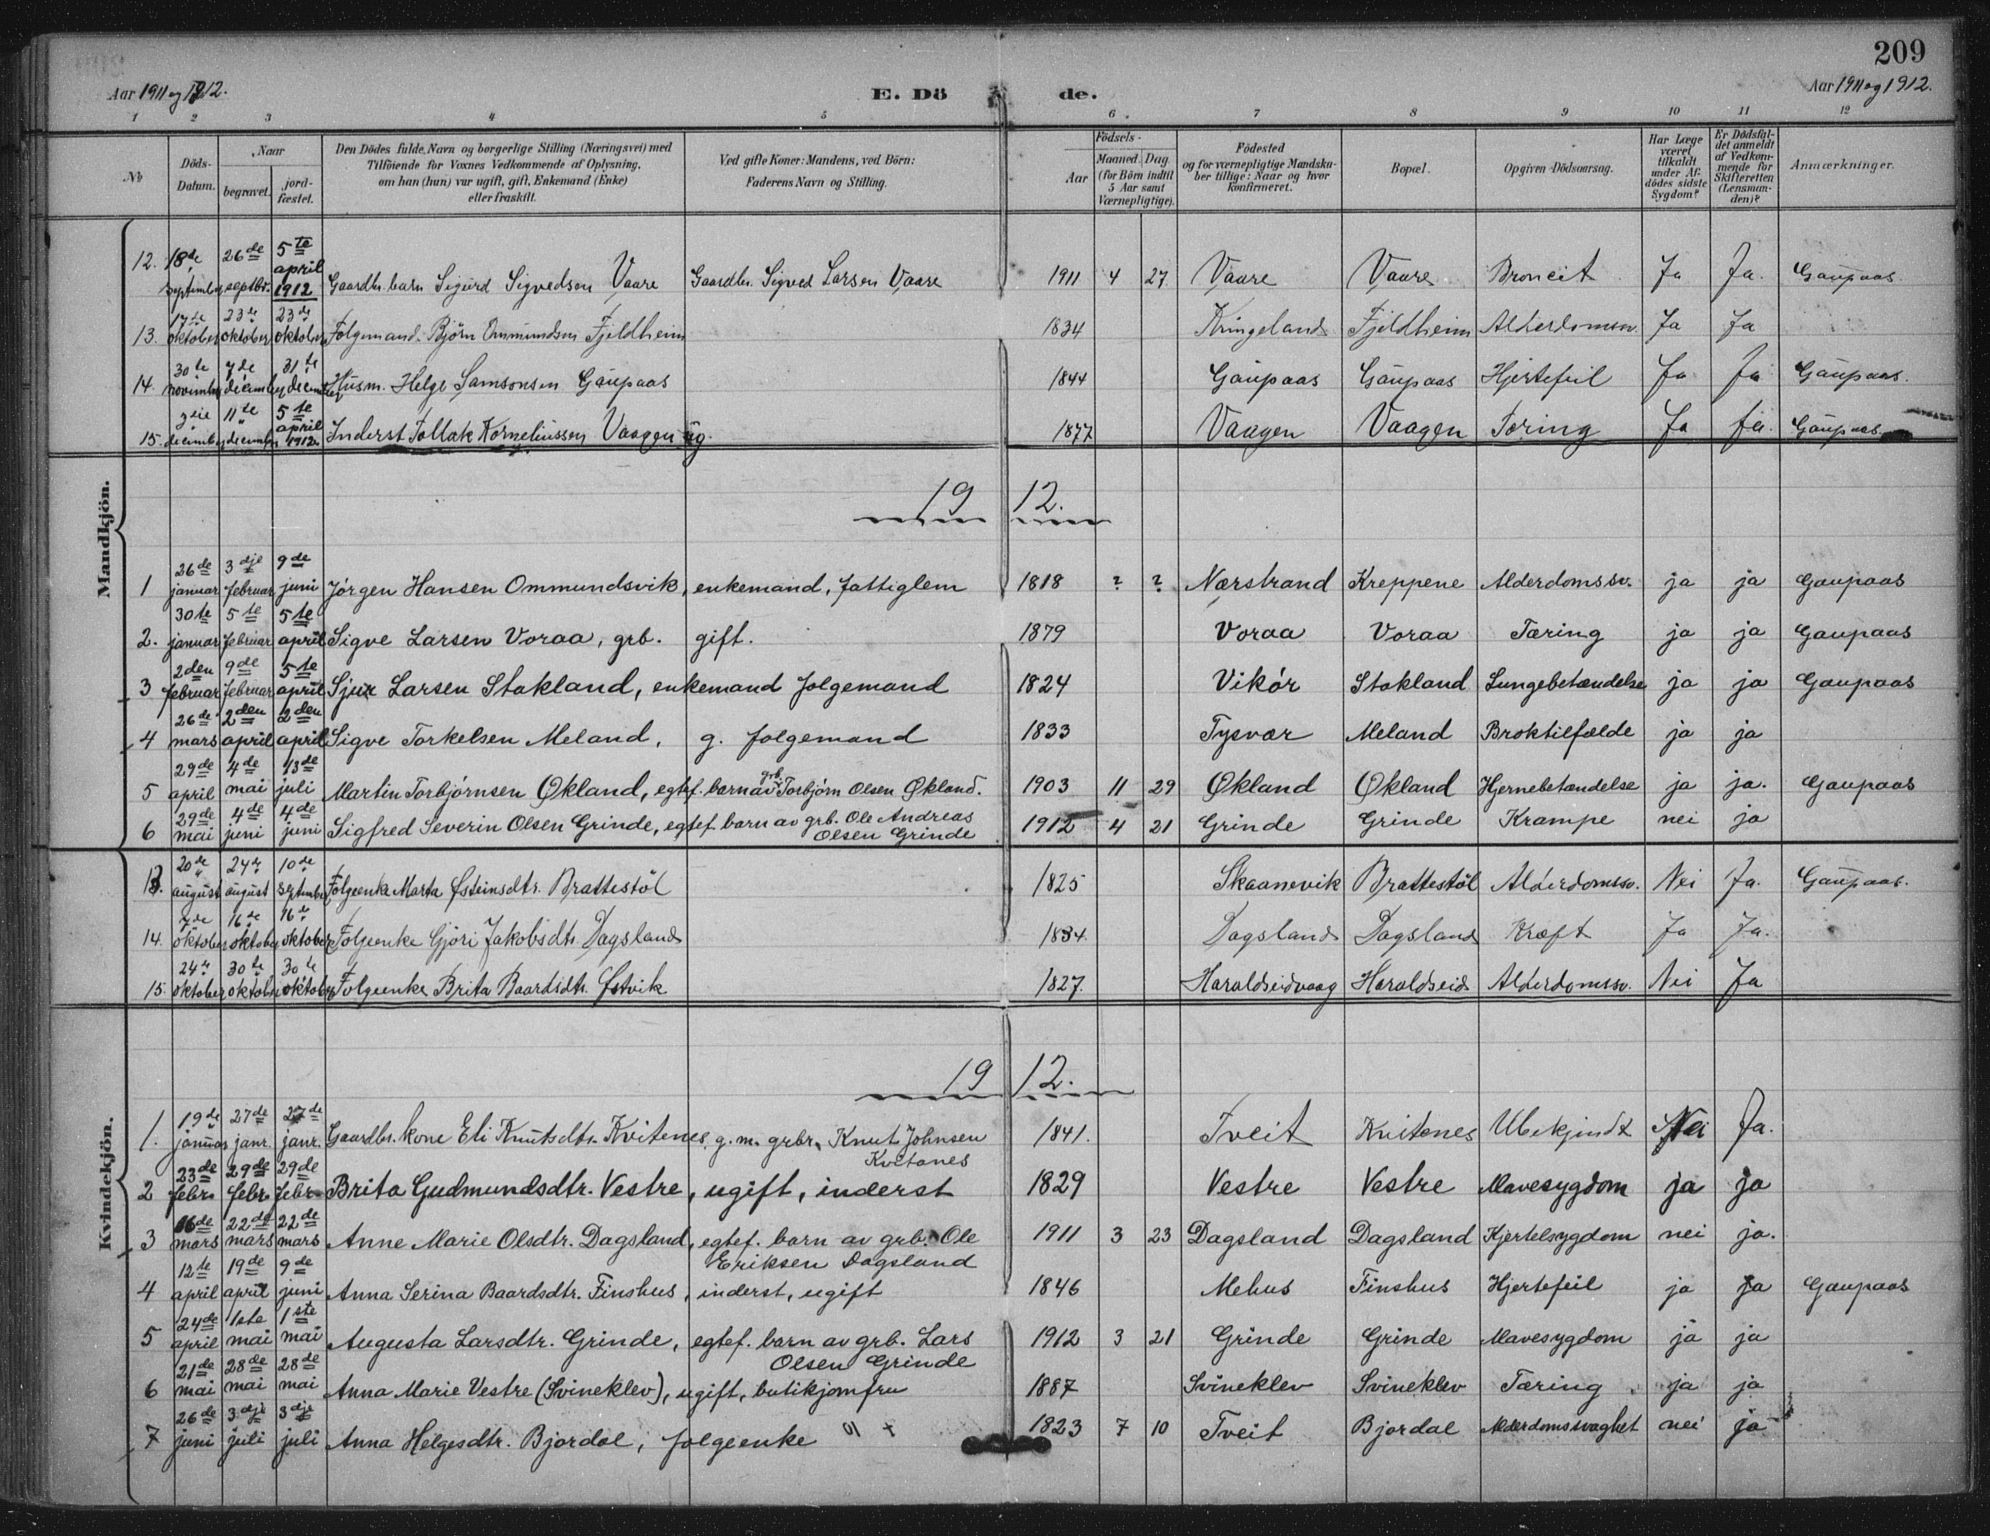 209
Aar 1911 og 1912.
E. Döde.
Aar 1911 og 1912.
1 2 3 4 5 6 7 8 9 10 11 12
No
Döds-Datum.
Naar
begravet.
jordfæstet.
Den Dödes fulde Navn og borgerlige Stilling (Næringsvei) med
Tilföiende for Voxnes Vedkommende af Oplysning,
om han (hun) var ugift, gift, Enkemand (Enke)
eller fraskilt.
Ved gifte Koner: Mandens, ved Börn:
Faderens Navn og Stilling.
Födsels-
Aar
Maaned. Dag
(for Börn indtil
5 Aar samt
Værnepligtige).
Födested
og for værnepligtige Mandska-
ber tillige: Naar og hvor
konfirmeret.
Bopæl.
Opgiven Dödsaarsag.
Har Læge
været
tilkaldt
under Af-
dödes sidste
Sygdom?
Er Dödsfal-
det anmeldt
af Vedkom-
mende for
Skifteretten
(Lensman-
den)?
Anmærkninger.
Mandkjön.
12. 18de septembr 26de septbr. 5te april 1912 Gaardbr. barn Sigurd Sigvedsen Vaare Gaardbr. Sigved Larsen Vaare 1911 4 27 Vaare Vaare Broncit Ja Ja. Gaupaas
13. 17de oktober 23de oktober 23de oktober Folgemand Björn Ommundsen Fjeldheim 1834 Kringeland Fjeldheim Alderdomssv. Ja Ja
14. 30te novembr 7de decembr 31te decembr Husm. Helge Samsonsen Gaupaas 1844 Gaupaas Gaupaas Hjertefeil Ja Ja Gaupaas.
15. 3die decembr 11te decembr 5te april 1912. Inderst Tollak Korneliussen Vaagen ug. 1877 Vaagen Vaagen Tæring Ja Ja. Gaupaas
1912.
1 26de januar 3dje februar 9de juni Jørgen Hansen Ommundsvik, enkemand, fattiglem 1818 ? ? Nærstrand Kreppene Alderdomssv. ja ja Gaupaas
2. 30te januar 5te februar 5te april Sigve Larsen Voraa, grb. gift. 1879 Voraa Voraa Tæring ja ja Gaupaas
3 2den februar 9de februar 5te april Sjur Larsen Stakland, enkemand folgemand 1824 Vikór Stakland Lungebetændelse ja ja Gaupaas
4 26de mars 2den april 2den april Sigve Torkelsen Meland, g. folgemand 1833 Tysvær Meland Broktilfælde ja ja
5 29de april 4de mai 13de juli Martin Torbjørnsen Økland, egtef. barn av grb. Torbjørn Olsen Økland. 1903 11 29 Økland Økland Hjernebetændelse ja ja. Gaupaas
6 29de mai 4de juni 4de juni Sigfred Severin Olsen Grinde, egtef. barn av grb. Ole Andreas
Olsen Grinde 1912 4 21 Grinde Grinde Krampe nei ja
Kvindekjön.
13. 20de august 24de august 10de septembr Folgeenke Marta Østeinsdtr. Brattestöl 1825 Skaanevik Brattestöl Alderdomssv. Nei Ja. Gaupaas.
14. 7de oktober 16de oktober 16de oktober Folgeenke Gjöri Jakobsdtr. Dagsland 1834. Dagsland Dagsland Kræft Ja Ja.
15. 24de oktober 30te oktober 30te oktober Folgeenke Brita Baardsdtr. Østvik 1827. Haraldseidvaag Haraldseid Alderdomssv. Nei Ja
1912.
1. 19de januar 27de janr. 27de janr. Gaardbr. kone Eli Knutsdtr. Kvitenes, g. m. grbr. Knut Johnsen
Kvitanes 1841. Tveit Kvitenes Ubekjendt Nei Ja.
2 23de febr. 29de febr. 29de febr. Brita Gudmundsdtr. Vestre, ugift, inderst 1829 Vestre Vestre Mavesygdom ja ja
3 16de mars 22de mars 22de mars Anne Marie Olsdtr. Dagsland, egtef. barn av grb. Ole
Eriksen Dagsland 1911 3 23 Dagsland Dagsland Kjertelsygdom nei ja.
4 12te april 19de april 9de juni Anna Serina Baardsdtr. Finshus, inderst, ugift 1846 Mehus Finshus Hjertefeil ja ja Gaupaas
5 24de april 1ste mai 1ste mai Augusta Larsdtr. Grinde, egtef. barn av grb. Lars
Olsen Grinde 1912 3 21 Grinde Grinde Mavesygdom ja ja
6 21de mai 28de mai 28de mai Anna Marie Vestre (Svineklev), ugift, butikjomfru 1887 Svineklev Svineklev Tæring ja ja
7 26de juni 3dje juli 3dje juli Anna Helgesdtr. Bjordal, folgeenke 1823 7 10 Tveit Bjordal Alderdomssvaghet nei ja